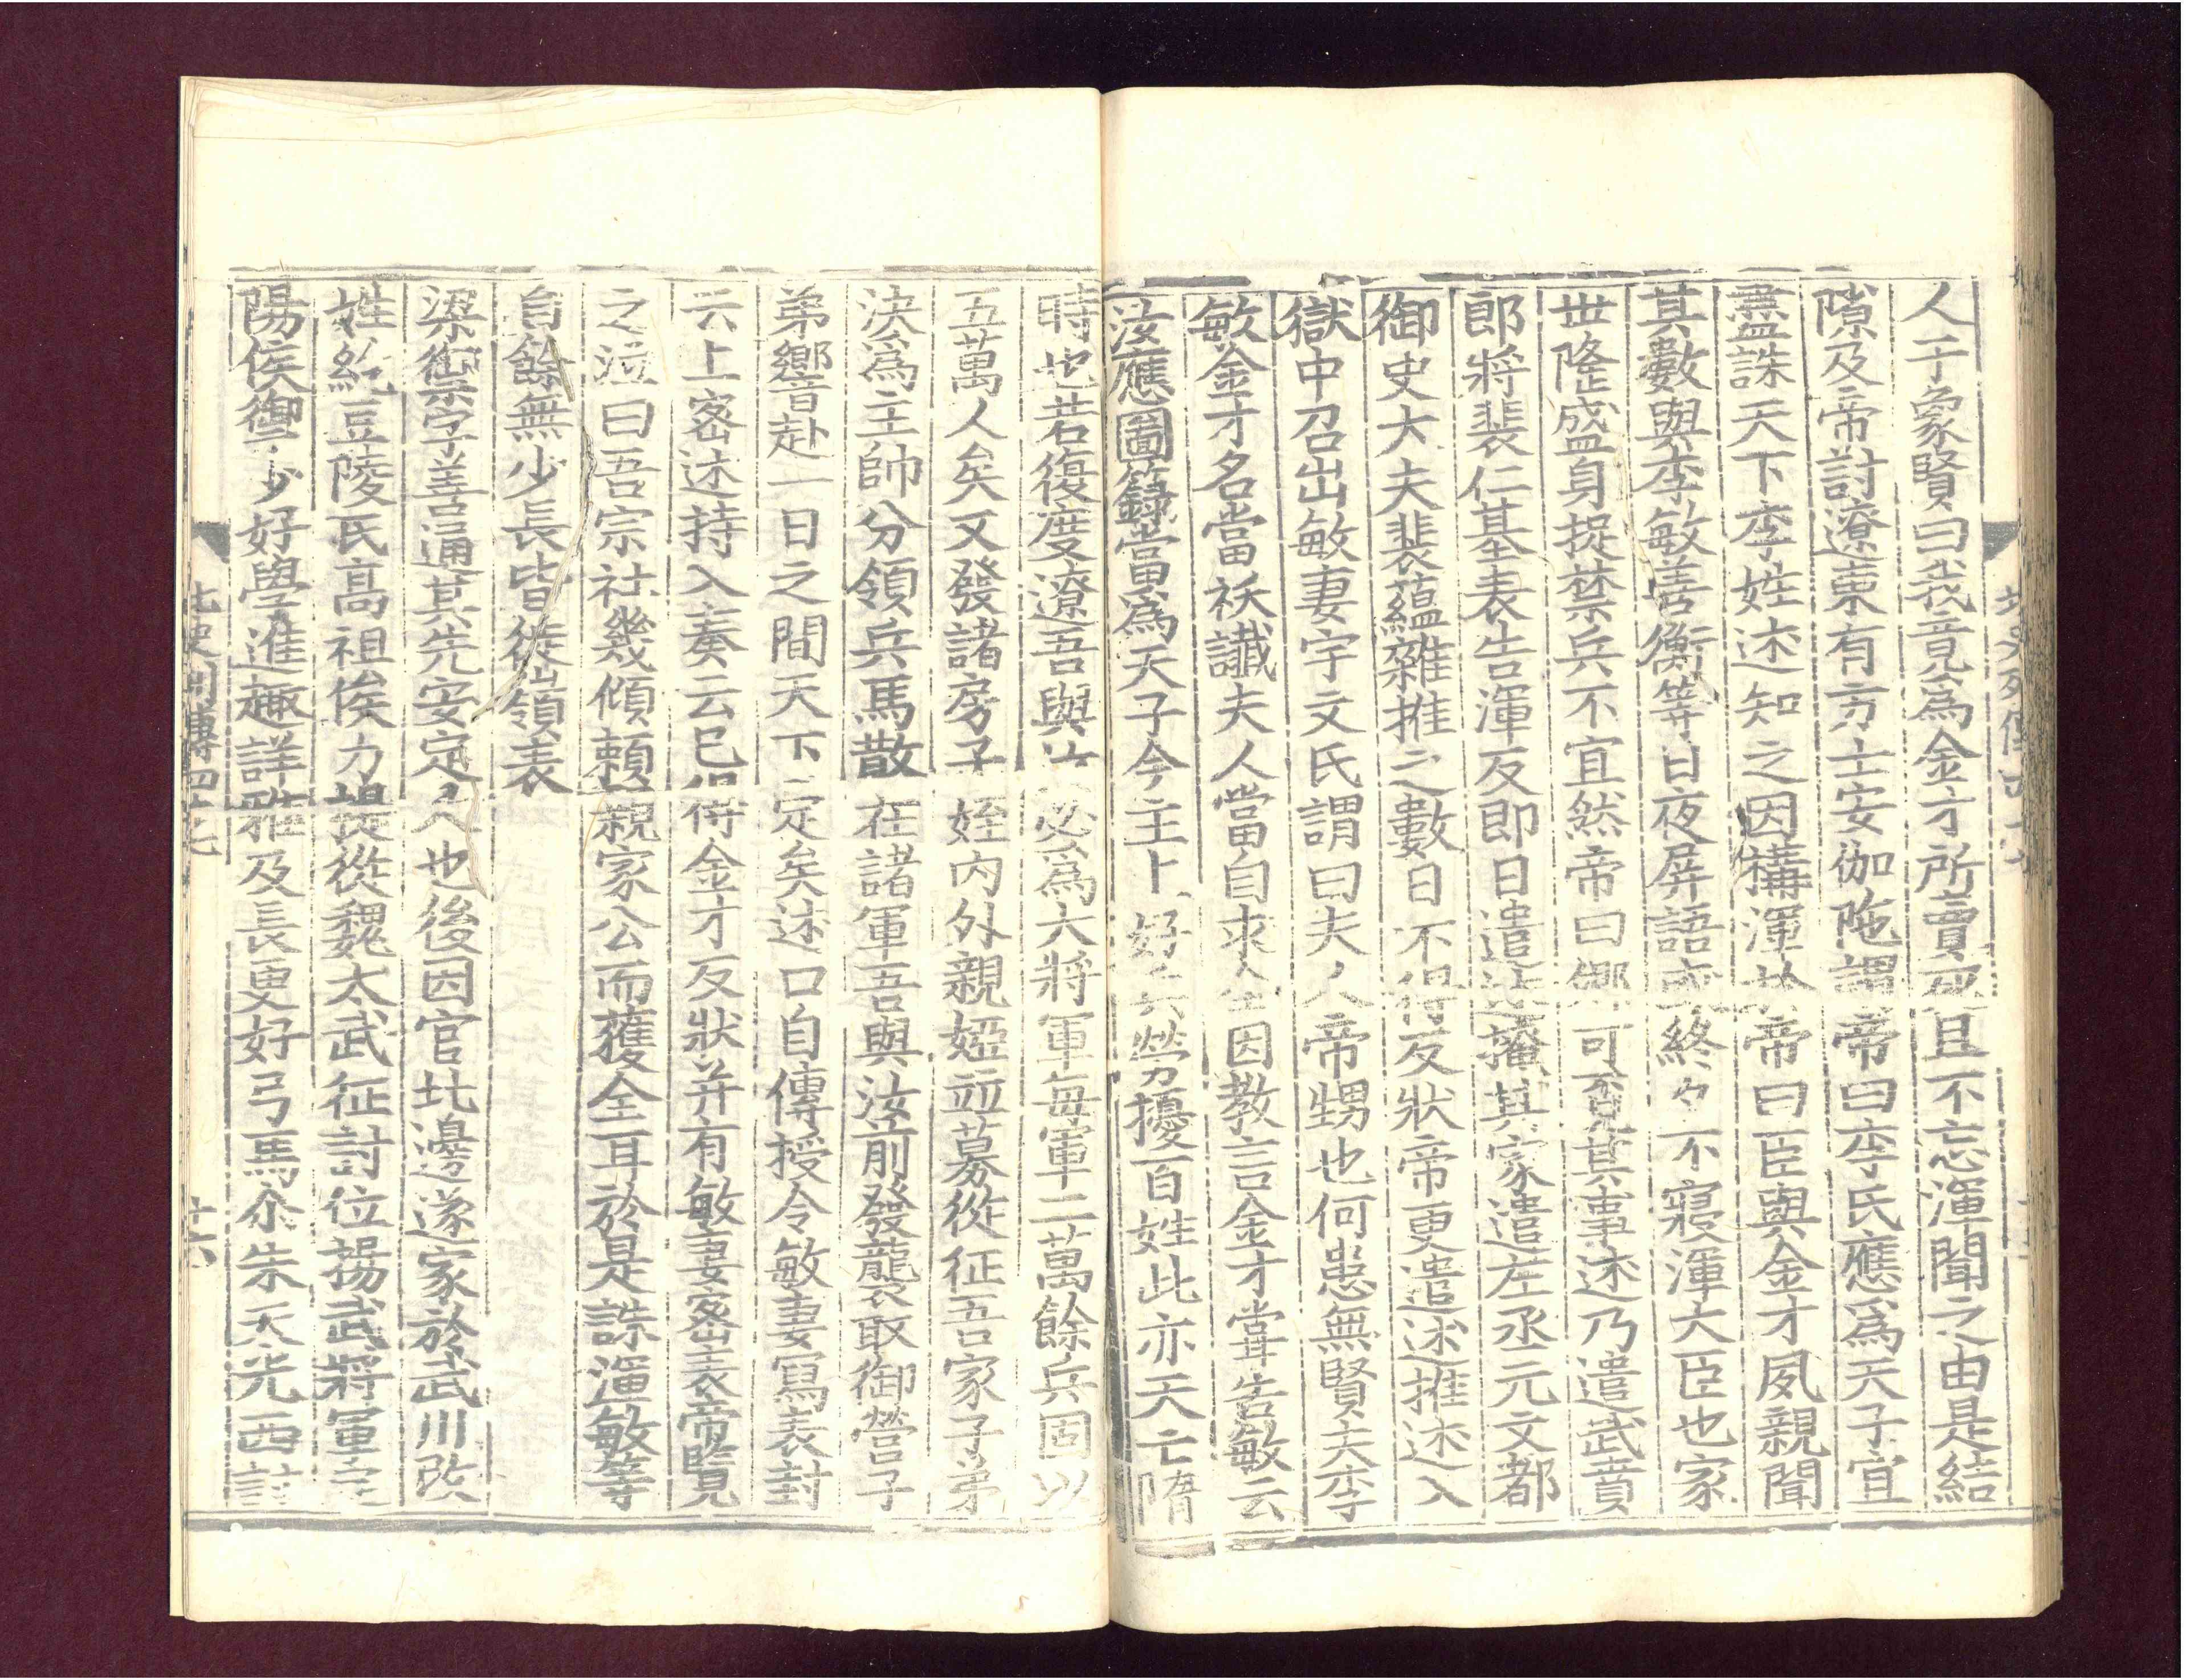 人于象賢曰我竟爲金才所賣死且不忘渾聞之由是結
隙及帝討遼東有方士安伽陁謂帝曰李氏應爲天子宜
盡誅天下李姓述知之因搆渾於帝曰臣與金才夙親聞
其數與李敏善衡等日夜屏語或終夕不寢渾大臣也家
世隆盛身捉禁兵不宜然帝曰卿可覓其事述乃遣武賁
郎將裴仁基表告渾反即日遣述掩其家遣左丞元文都
御史大夫裴蘊雜推之數日不得反狀帝更遣述推述入
獄中召出敏妻宇文氏謂曰夫人帝甥也何患無賢夫李
敏金才名當祅讖夫人當自求全因教言金才嘗告敏云
汝應圖籙當爲天子今主上好兵勞擾百姓此亦天亡隋
時也若復度遼吾與汝必爲大將軍每軍二萬餘兵固以
五萬人矣又發諸房子姪內外親婭並募從征吾家子弟
決爲主帥分領兵馬散在諸軍吾與汝前發襲取御營子
弟響赴一日之間天下定矣述口自傳授令敏妻寫表封
云上密述持入奏云已得金才反狀并有敏妻密表帝覽
之泣曰吾宗社幾傾賴親家公而獲全耳於是誅渾敏等
自餘無少長皆徙嶺表
梁禦字善通其先安定人也後因官北邊遂家於武川改
姓紇豆陵氏高祖俟力提從魏太武征討位揚武將軍定
陽侯禦少好學進趣詳雅及長更好弓馬尒朱天光西討
北史列傳四十七
廿六